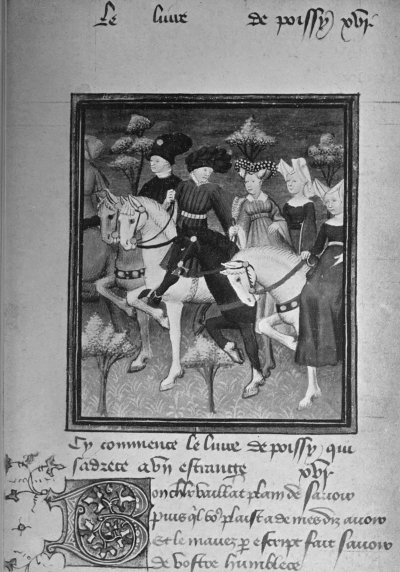 Le livre de poissy xvi
Cy commence le livre de poissy qui
sadrece a un estrange xvi
Bon chlr vaillāt plain de savoir
Puis ql vo9 plaist a de mes diz avoir
Et le mavez p escript fait savoir
De vostre humblece